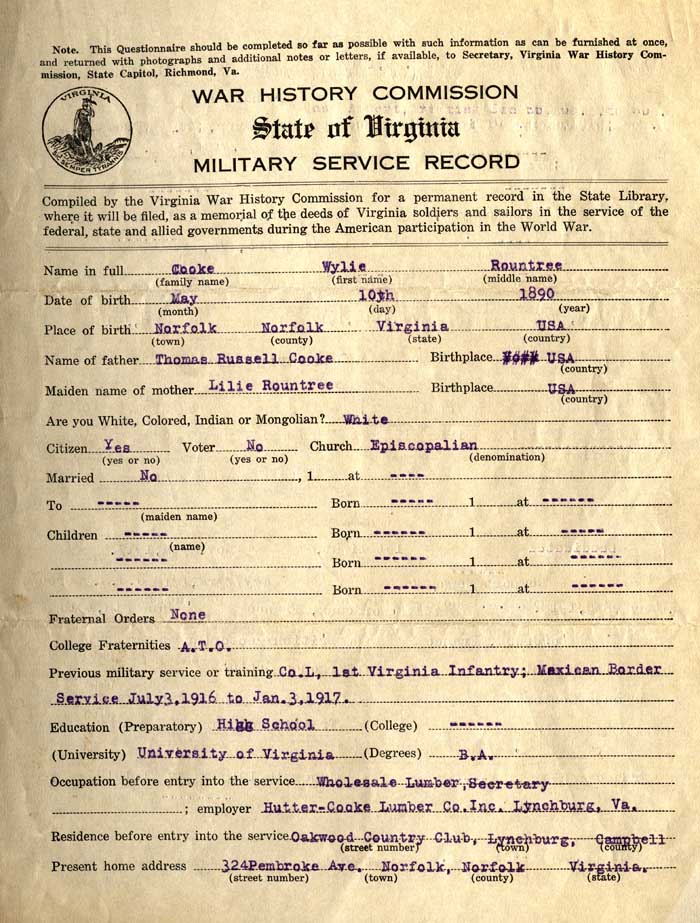 Note. This Questionnaire should be completed so far as possible with such information as can be furnished at once,
and returned with photographs and additional notes or letters, if available, to Secretary, Virginia War History Com-
mission, State Capitol, Richmond, Va.
VIRGINIA
SIC SEMPER TYRANNIS
WAR HISTORY COMMISSION
State of Virginia
MILITARY SERVICE RECORD
Compiled by the Virginia War History Commission for a permanent record in the State Library,
where it will be filed, as a memorial of the deeds of Virginia soldiers and sailors in the service of the
federal, state and allied governments during the American participation in the World War.
Name in full Cooke Wylie Rountree
(family name) (first name) (middle name)
Date of birth May 10th 1890
(month) (day) (year)
Place of birth Norfolk Norfolk Virginia USA
(town) (county) (state) (country)
Name of father Thomas Russell Cooke Birthplace USA
(country)
Maiden name of mother Lilie Rountree Birthplace USA
(country)
Are you White, Colored, Indian or Mongolian? White
Citizen Yes Voter No Church Episcopalian
(yes or no) (yes or no) (denomination)
Married No , 1 at ----
To ----- Born ----- 1 at ------
(maiden name)
Children ----- Born ------ 1 at -----
(name)
------ Born ------ 1 at ------
------ Born ------ 1 at ------
Fraternal Orders None
College Fraternities A.T.O.
Previous military service or training Co.L, 1st Virginia Infantry; Maxican Border
Service July3,1916 to Jan.3,1917.
Education (Preparatory) High School (College) ------
(University) University of Virginia (Degrees) B.A.
Occupation before entry into the service Wholesale Lumber,Secretary
; employer Hutter-Cooke Lumber Co.Inc. Lynchburg, Va.
Residence before entry into the service Oakwood Country Club, Lynchburg, Campbell
(street number) (town) (county)
Present home address 324Pembroke Ave. Norfolk, Norfolk Virginia.
(street number) (town) (county) (state)